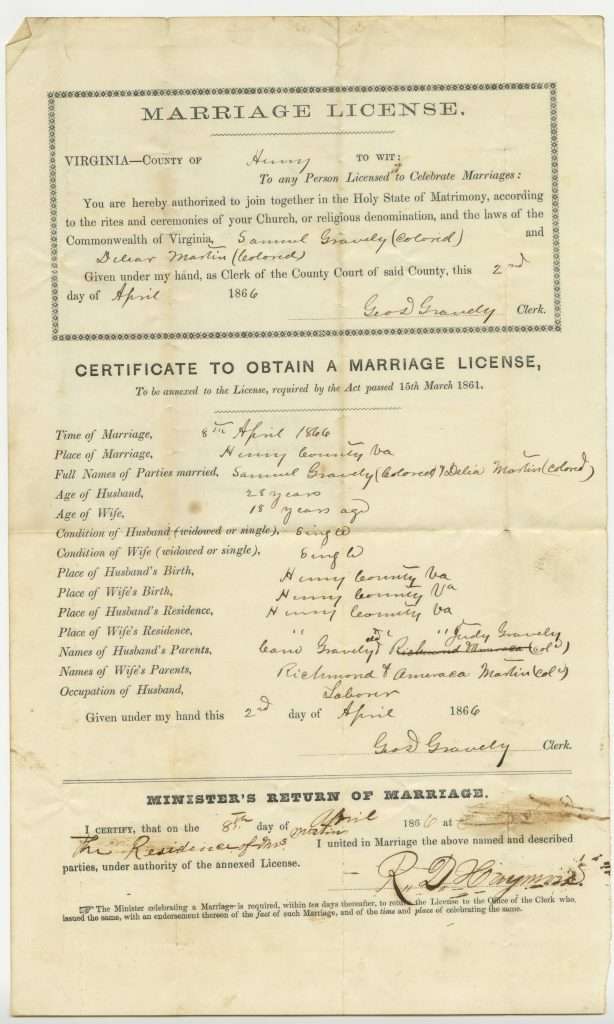 MARRIAGE LICENSE.
VIRGINIA—COUNTY OF Henry TO WIT:
To any Person Licensed to Celebrate Marriages:
You are hereby authorized to join together in the Holy State of Matrimony, according
to the rites and ceremonies of your Church, or religious denomination, and the laws of the
Commonwealth of Virginia, Samuel Gravely (Colored) and
Deliar Martin (Colored)
Given under my hand, as Clerk of the County Court of said County, this 2nd
day of April 1866
Geo D Gravely Clerk.
CERTIFICATE TO OBTAIN A MARRIAGE LICENSE,
To be annexed to the License, required by the Act passed 15th March 1861.
Time of Marriage, 8th April 1866
Place of Marriage, Henry County Va
Full Names of Parties married, Samuel Gravely (Colored) & Delia Martin (Colored)
Age of Husband, 28 years
Age of Wife, 18 years age
Condition of Husband (widowed or single), Single
Condition of Wife (widowed or single), Single
Place of Husband's Birth, Henry County Va
Place of Wife's Birth, Henry County Va
Place of Husband's Residence, Henry County Va
Place of Wife's Residence, " " "
Names of Husband's Parents, Gravely Judy Gravely (cold)
Names of Wife's Parents, Richmond & Ameraca Martin (cold)
Occupation of Husband, Laborer
Given under my hand this 2nd day of April 1866
Geo D Gravely Clerk.
MINISTER'S RETURN OF MARRIAGE.
I CERTIFY, that on the 8th day of April 1866 at
The Residence of Mrs Martin I united in Marriage the above named and described
parties, under authority of the annexed License.
R. D. Haymore
☞ The Minister celebrating a Marriage is required, within ten days thereafter, to return the License to the Office of the Clerk who
issued the same, with an endorsement thereon of the fact of such Marriage, and of the time and place of celebrating the same.